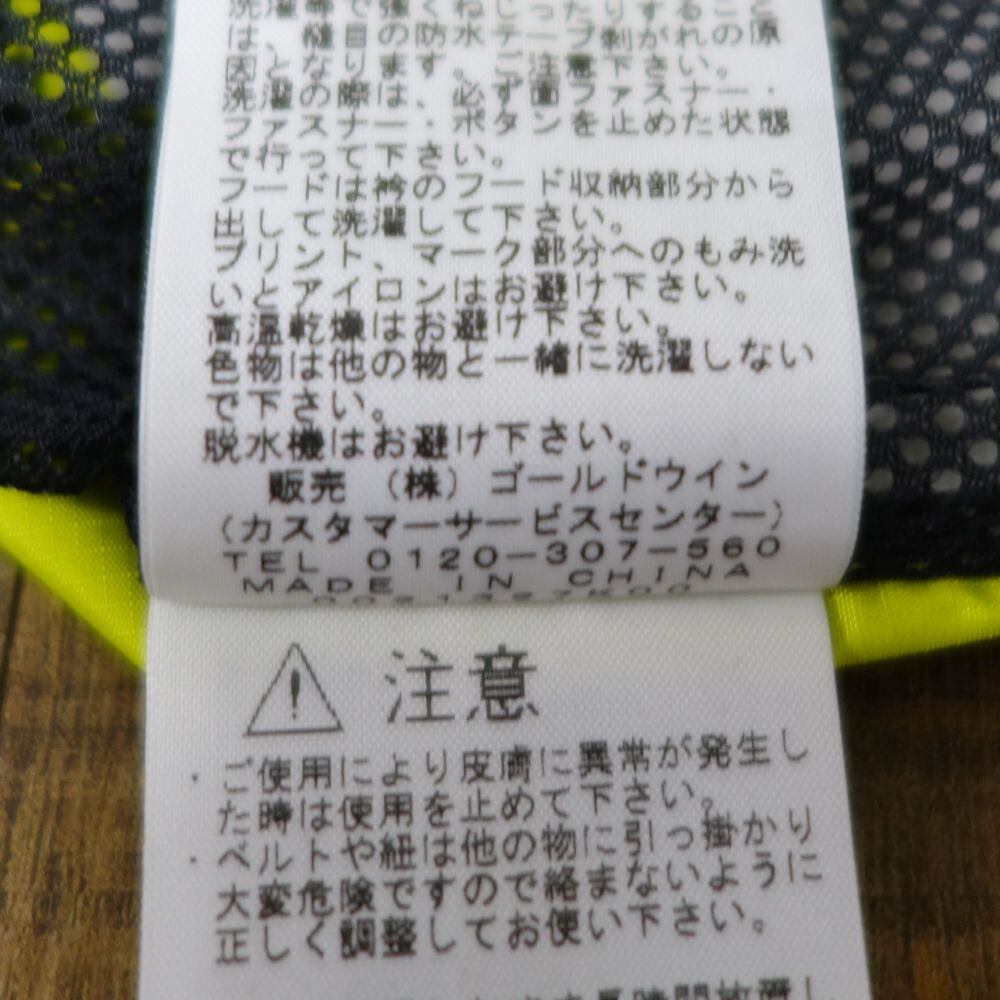 洗濯等で強くねじったりするこ と
は、縫目の防水テープ剥がれの原
因となります。ご注意下さい。
洗濯の際は、必ず面ファスナー・
ファスナー・ボタンを止めた状態
で行って下さい。
フードは衿のフード収納部分から
出して洗濯して下さい。
プリント、マーク部分へのもみ洗
いとアイロンはお避け下さい。
高温乾燥はお避け下さい。
色物は他の物と一緒に洗濯しない
で下さい。
脱水機はお避け下さい。
販売 (株) ゴールドウイン
(カスタマーサービスセンター)
TEL 0120-307-560
MADE IN CHINA
注意
・ご使用により皮膚に異常が発生し
た時は使用を止めて下さい。
・ベルトや紐は他の物に引っ掛かり
大変危険ですので絡まないように
正しく調整してお使い下さい。